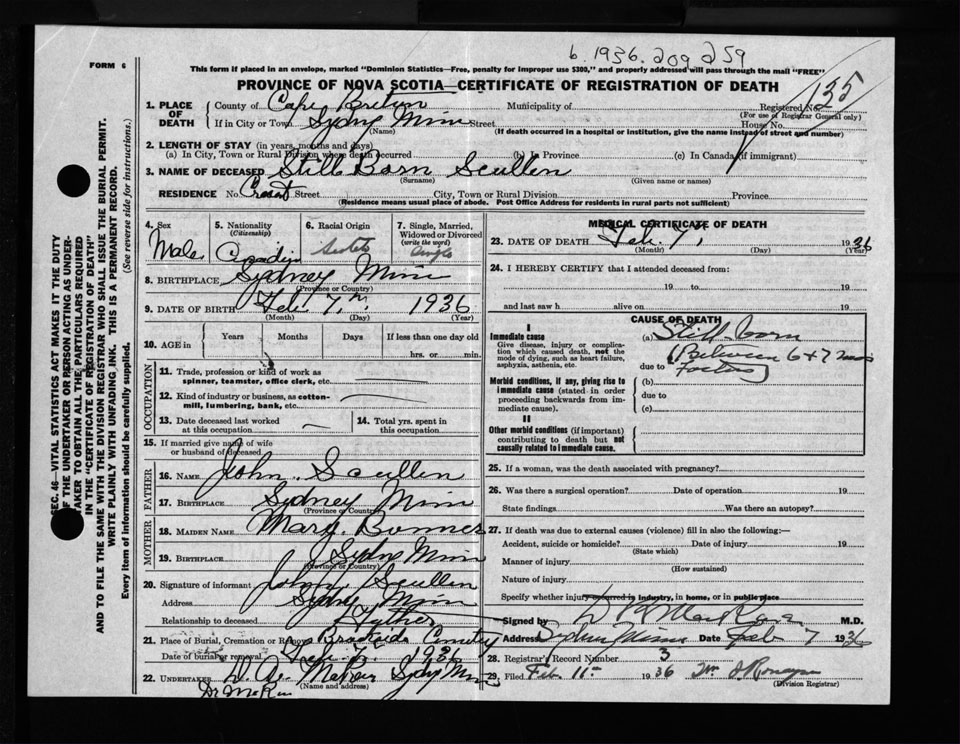 6. 1936. 209 259
FORM 6
This form if placed in an envelope, marked "Dominion Statistics—Free, penalty for improper use $300," and properly addressed will pass through the mail "FREE"
PROVINCE OF NOVA SCOTIA—CERTIFICATE OF REGISTRATION OF DEATH
135
1. PLACE OF DEATH
County of Cape Breton Municipality of Registered No.
(For use of Registrar General only)
If in City or Town Sydney Mines Street House No.
(Name) (If death occurred in a hospital or institution, give the name instead of street and number)
2. LENGTH OF STAY (in years, months and days)
(a) In City, Town or Rural Division where death occurred (b) In Province (c) In Canada (if immigrant)
3. NAME OF DECEASED Still Born Scullen
(Surname) (Given name or names)
RESIDENCE No. Street City, Town or Rural Division Province
(Residence means usual place of abode. Post Office Address for residents in rural parts not sufficient)
4. Sex
Male
5. Nationality
(Citizenship)
Canadian
6. Racial Origin
7. Single, Married, Widowed or Divorced
(write the word)
Single
8. BIRTHPLACE Sydney Mines
(Province or Country)
9. DATE OF BIRTH Feb. 7th 1936
(Month) (Day) (Year)
10. AGE in
Years Months Days If less than one day old
hrs. or min.
OCCUPATION
11. Trade, profession or kind of work as
spinner, teamster, office clerk, etc.
12. Kind of industry or business, as cotton-
mill, lumbering, bank, etc.
13. Date deceased last worked
at this occupation
14. Total yrs. spent in
this occupation
15. If married give name of wife
or husband of deceased
FATHER
16. NAME John Scullen
17. BIRTHPLACE Sydney Mines
(Province or Country)
MOTHER
18. MAIDEN NAME Mary Bonner
19. BIRTHPLACE Sydney Mines
(Province or Country)
20. Signature of informant John Scullen
Address Sydney Mines
Relationship to deceased Father
21. Place of Burial, Cremation or Removal Cemetery
Date of burial or removal Feb. 7 1936
22. UNDERTAKER Sydney Mines
(Name and address)
MEDICAL CERTIFICATE OF DEATH
23. DATE OF DEATH Feb. 7, 1936
(Month) (Day) (Year)
24. I HEREBY CERTIFY that I attended deceased from:
19 to 19
and last saw h alive on 19
CAUSE OF DEATH
I
Immediate cause
Give disease, injury or complication which caused death, not the mode of dying, such as heart failure, asphyxia, asthenia, etc.
(a) Still-born
due to (Between 6 & 7 mos
Morbid conditions, if any, giving rise to immediate cause (stated in order proceeding backwards from immediate cause).
(b)
due to
(c)
II
Other morbid conditions (if important) contributing to death but not causally related to immediate cause.
25. If a woman, was the death associated with pregnancy?
26. Was there a surgical operation? Date of operation 19
State findings Was there an autopsy?
27. If death was due to external causes (violence) fill in also the following:—
Accident, suicide or homicide? Date of injury 19
(State which)
Manner of injury
(How sustained)
Nature of injury
Specify whether injury occurred in industry, in home, or in public place
Signed by M.D.
Address Sydney Mines Date Feb 7 1936
28. Registrar's Record Number 3
29. Filed Feb. 11th 1936
(Division Registrar)
SEC. 46—VITAL STATISTICS ACT MAKES IT THE DUTY
OF THE UNDERTAKER OR PERSON ACTING AS UNDER-
TAKER TO OBTAIN ALL THE PARTICULARS REQUIRED
IN THE "CERTIFICATE OF REGISTRATION OF DEATH"
AND TO FILE THE SAME WITH THE DIVISION REGISTRAR WHO SHALL ISSUE THE BURIAL PERMIT.
WRITE PLAINLY WITH UNFADING INK. THIS IS A PERMANENT RECORD.
Every item of information should be carefully supplied. (See reverse side for instructions.)